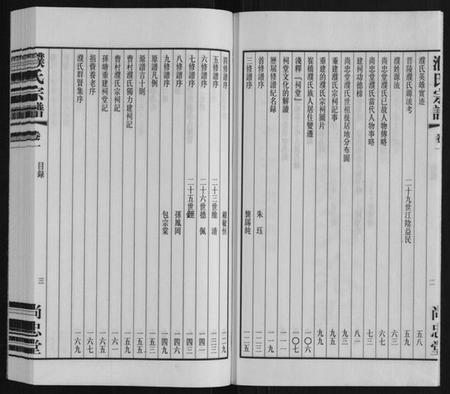 濮氏宗譜
卷一
二
尚忠堂
濮氏英雄實迹 五八
晉陵濮氏源流考 二十九世江陰益民 五九
濮姓源流 六三
尚忠堂濮氏已故人物傳略 六七
尚忠堂濮氏當代人物事略 七三
建祠功德榜 八一
尚忠堂濮氏世祖後居地分布圖 九三
重建濮氏宗祠記事
重建的濮氏宗祠圖片 九九
崔橋濮氏族人居住變遷 一〇六
淺釋「祠堂」 一〇七
祠堂文化的解讀
歷屆修譜紀名錄 一一九
首修譜序 朱珏 一二三
三修譜序 龔陽純 一二五
四修譜序 一二九
五修譜序 二十三世維清 一三三
六修譜序 二十六世德佩 一四一
七修譜序 二十五世
八修譜序 孫鳳岡 一四六
九修譜序 包宗棠 一四九
原譜凡例 一五三
原譜吉十則 一五五
曹村濮氏獨力建祠記 一五五
曹村濮氏宗祠記 一五九
孫塘重建祠堂記 一六一
捐資養老序 一六七
濮氏群賢集序 一六九
濮氏宗譜
卷一
目録
三
尚忠堂